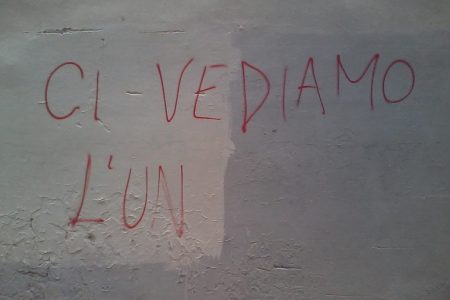 CI-VEDIAMO
L'UN